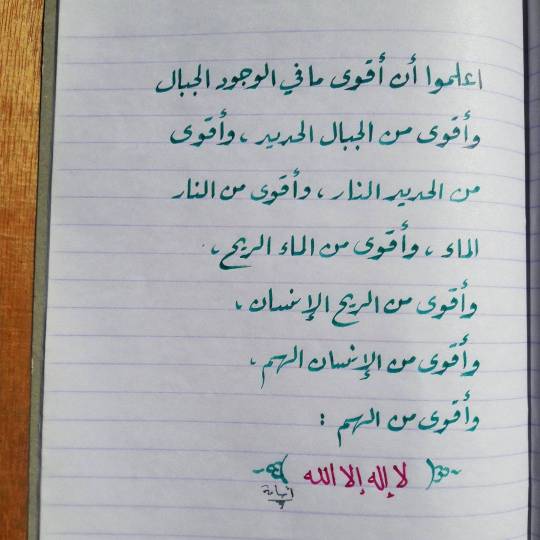 اعلموا أن أقوى ما في الوجود الجبال
وأقوى من الجبال الحديد ، وأقوى
من الحديد النار ، وأقوى من النار
الماء ، وأقوى من الماء الريح ،
وأقوى من الريح الإنسان ،
وأقوى من الإنسان الهم ،
وأقوى من الهم :
لا إله إلا الله